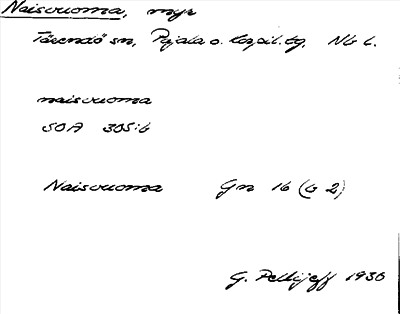 Naisvuoma, myr
Tärendö sn, Pajala o. Korpil. tg, Nb l.
naisvuoma
SOA 305:6
Naisvuoma Gn 16 (G 2)
G. Pellijeff 1930